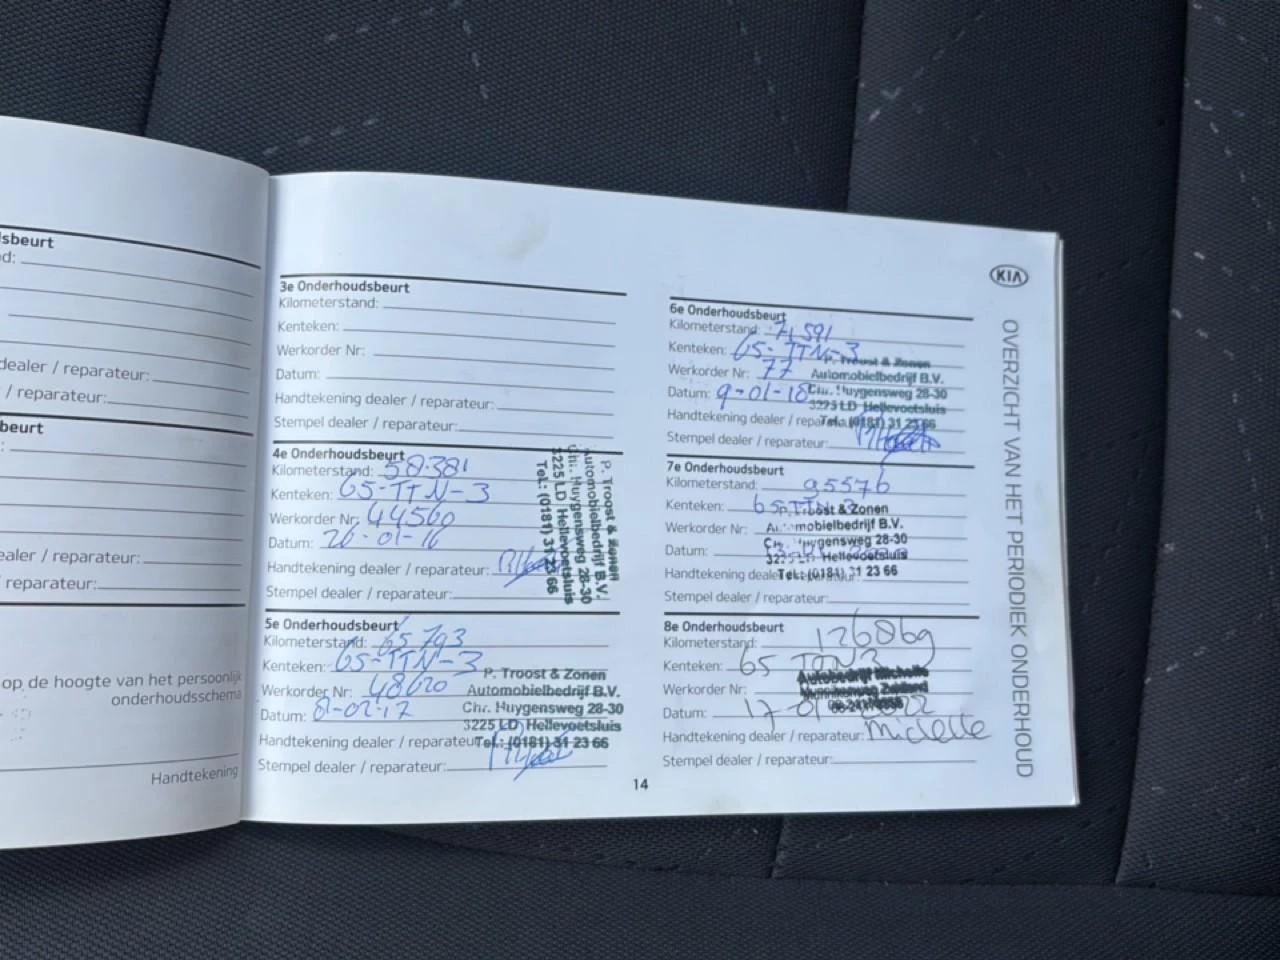 lsbeurt
d:
dealer / reparateur:
/ reparateur:
beurt
:
ealer / reparateur:
reparateur:
op de hoogte van het persoonlijk
onderhoudsschema
Handtekening
3e Onderhoudsbeurt
Kilometerstand:
Kenteken:
Werkorder Nr:
Datum:
Handtekening dealer / reparateur:
Stempel dealer / reparateur:
4e Onderhoudsbeurt
Kilometerstand: 58.381
Kenteken: 65-TTN-3
Werkorder Nr: 44560
Datum: 26-01-16
Handtekening dealer / reparateur:
Stempel dealer / reparateur:
P. Troost & Zonen
Automobielbedrijf B.V.
Chr. Huygensweg 28-30
3225 LD Hellevoetsluis
Tel.: (0181) 31 23 66
5e Onderhoudsbeurt
Kilometerstand: 65793
Kenteken: 65-TTN-3
Werkorder Nr: 48620
Datum: 8-02-17
Handtekening dealer / reparateur
Stempel dealer / reparateur:
P. Troost & Zonen
Automobielbedrijf B.V.
Chr. Huygensweg 28-30
3225 LD Hellevoetsluis
Tel.: (0181) 31 23 66
14
6e Onderhoudsbeurt
Kilometerstand: 71591
Kenteken: 65-TTN-3
Werkorder Nr: 77
Datum: 9-01-18
Handtekening dealer / repa
Stempel dealer / reparateur:
P. Troost & Zonen
Automobielbedrijf B.V.
Chr. Huygensweg 28-30
3225 LD Hellevoetsluis
Tel.: (0181) 31 23 66
7e Onderhoudsbeurt
Kilometerstand: 95576
Kenteken: 65
Werkorder Nr:
Datum:
Handtekening deale
Stempel dealer / reparateur:
P. Troost & Zonen
Automobielbedrijf B.V.
Chr. Huygensweg 28-30
3225 LD Hellevoetsluis
Tel.: (0181) 31 23 66
8e Onderhoudsbeurt
Kilometerstand: 126869
Kenteken: 65 TTN3
Werkorder Nr:
Autobedrijf
Datum: 17-01
Handtekening dealer / reparateur:
Stempel dealer / reparateur:
KIA
OVERZICHT VAN HET PERIODIEK ONDERHOUD